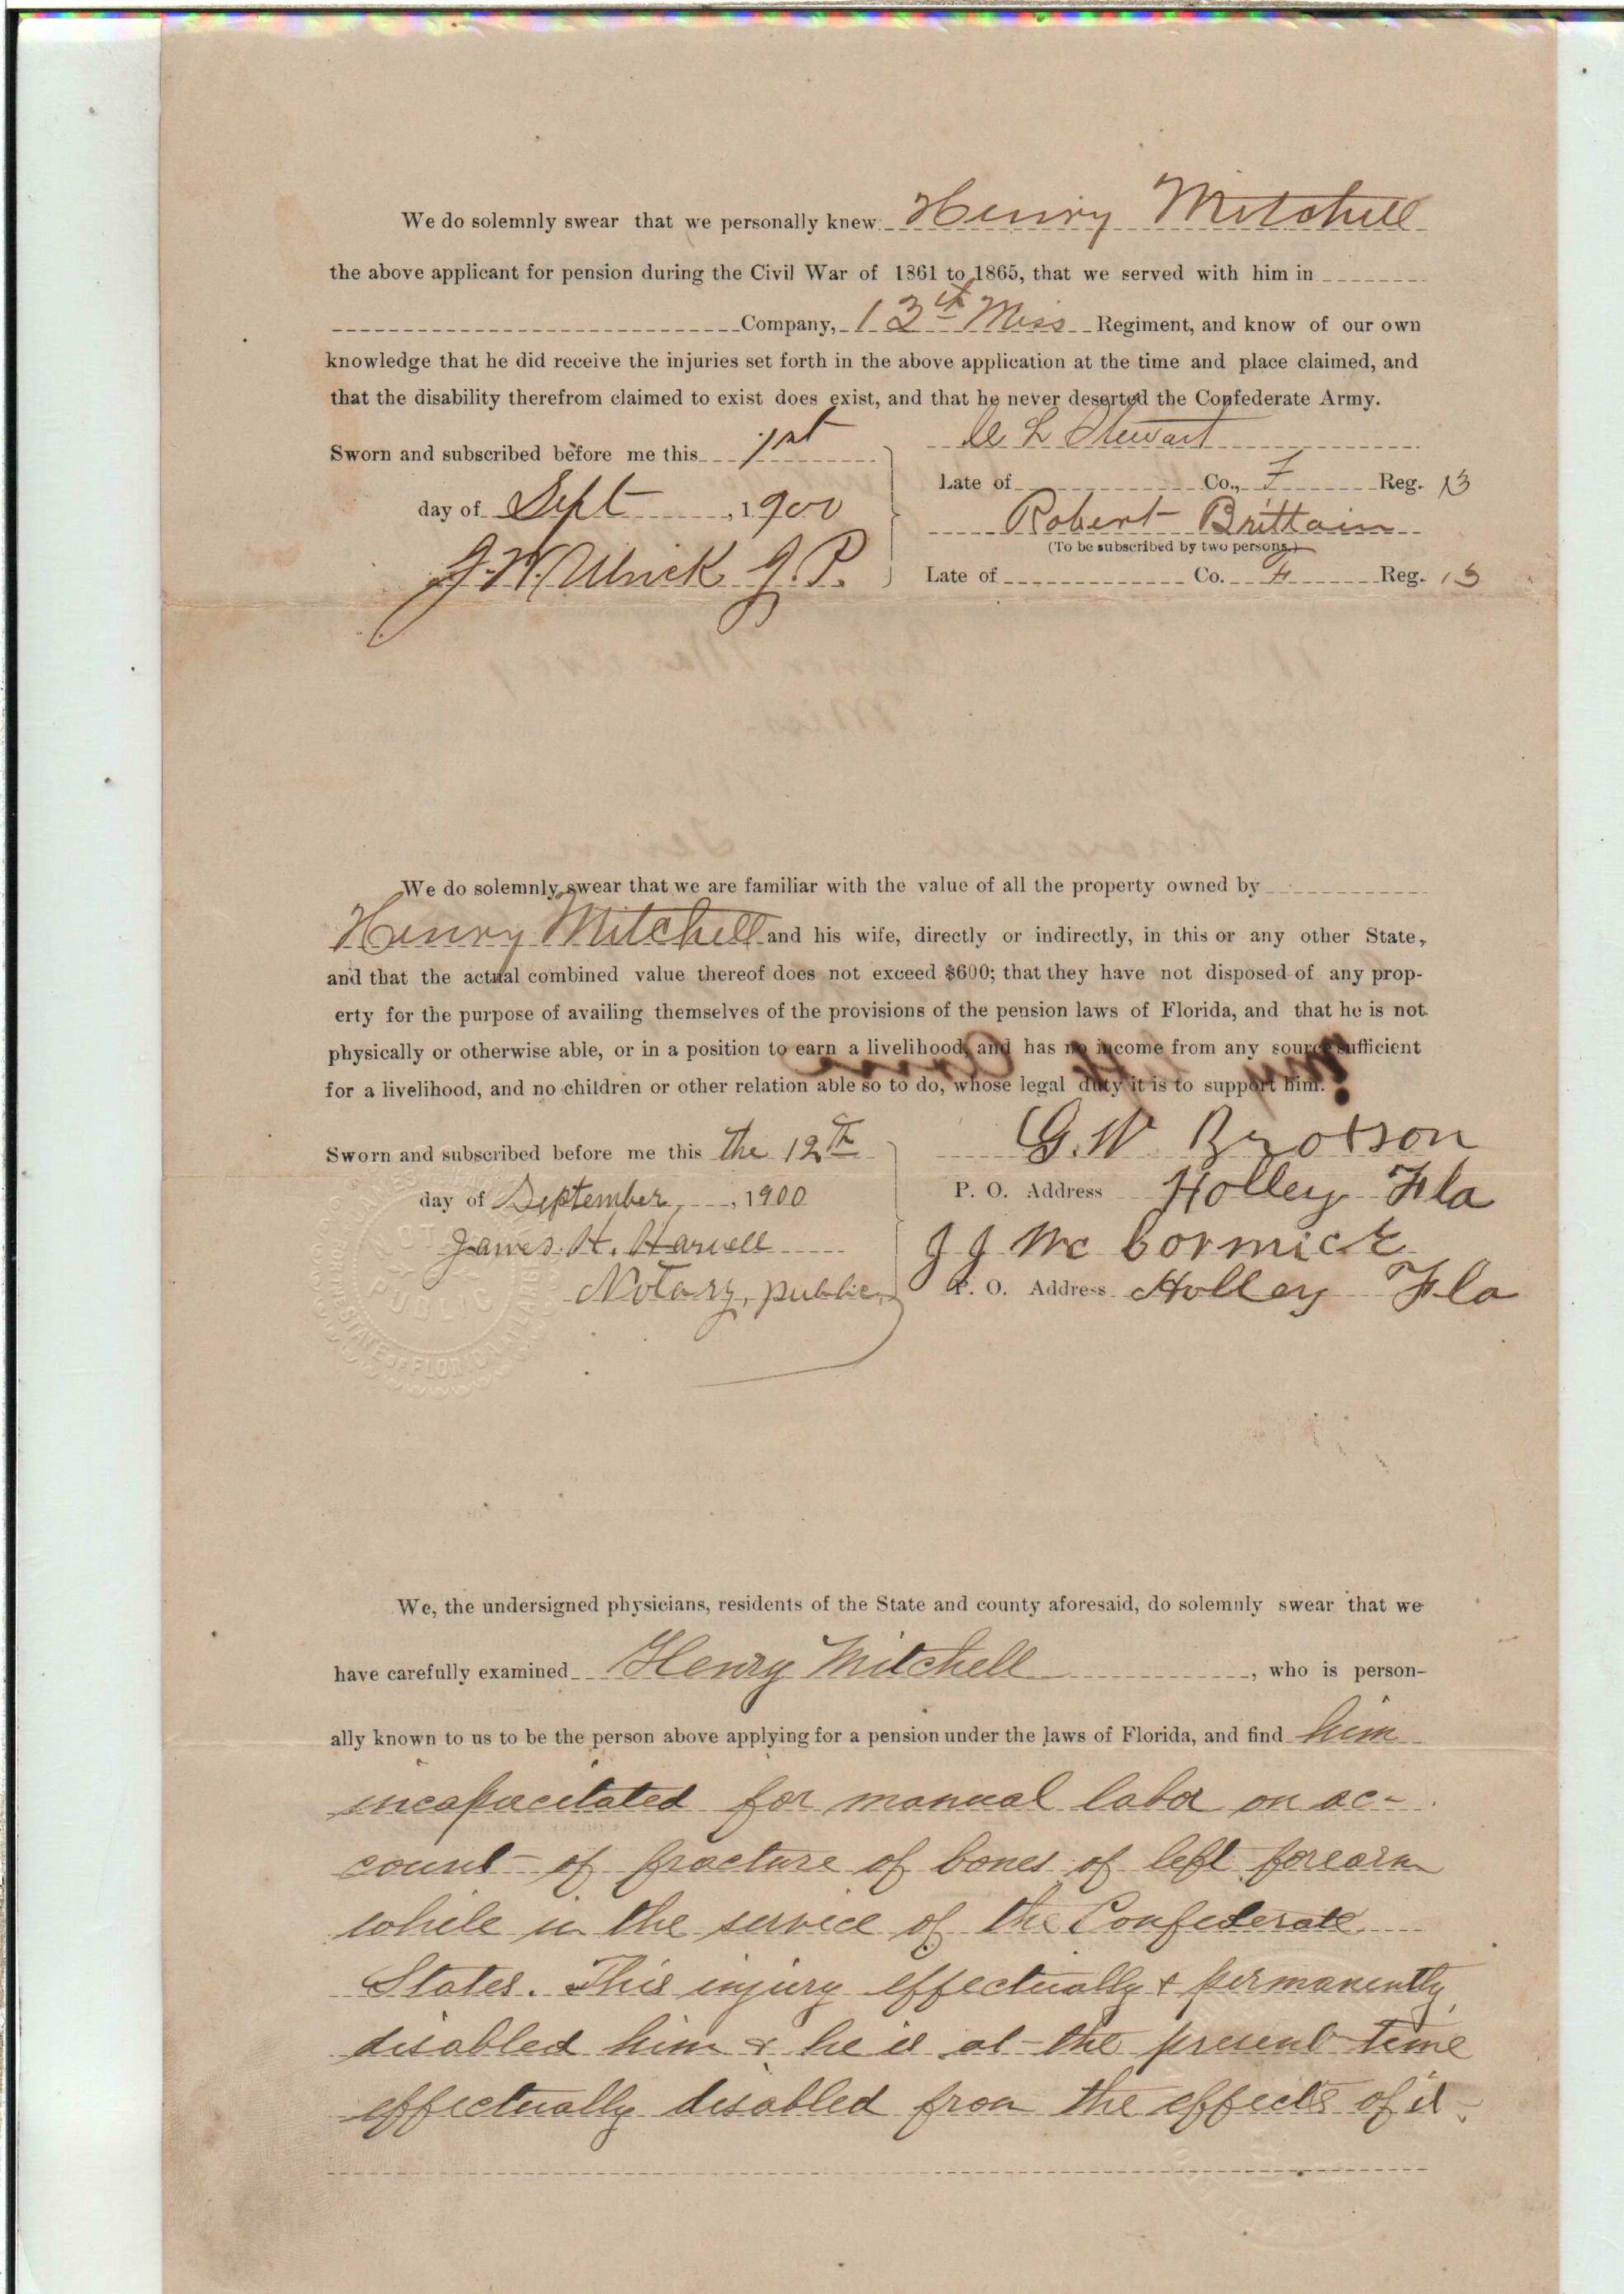 We do solemnly swear that we personally knew Henry Mitchell
the above applicant for pension during the Civil War of 1861 to 1865, that we served with him in
Company, 13th Miss Regiment, and know of our own
knowledge that he did receive the injuries set forth in the above application at the time and place claimed, and
that the disability therefrom claimed to exist does exist, and that he never deserted the Confederate Army.
L Stewart
Sworn and subscribed before me this 1st
Late of Co., F Reg. 13
day of Sept, 1900
Robert Brittain
(To be subscribed by two persons.)
J. W. Ulrick J. P.
Late of Co. Reg. 13
We do solemnly swear that we are familiar with the value of all the property owned by
Henry Mitchell and his wife, directly or indirectly, in this or any other State,
and that the actual combined value thereof does not exceed $600; that they have not disposed of any prop-
erty for the purpose of availing themselves of the provisions of the pension laws of Florida, and that he is not
physically or otherwise able, or in a position to earn a livelihood, and has no income from any source sufficient
for a livelihood, and no children or other relation able so to do, whose legal duty it is to support him.
Sworn and subscribed before me this the 12th
G. W. Brotson
day of September, 1900
P. O. Address Holley Fla
James. H. Harvell
J J McCormick
Notary, public
P. O. Address Holley Fla
NOT
PUBLIC
STATE OF FLORIDA AT LARGE
We, the undersigned physicians, residents of the State and county aforesaid, do solemnly swear that we
have carefully examined Henry Mitchell, who is person-
ally known to us to be the person above applying for a pension under the laws of Florida, and find him
incapacitated for manual labor on ac-
count of fracture of bones of left forearm
while in the service of the Confederate
States. This injury effectually & permanently
disabled him & he is at the present time
effectually disabled from the effects of it.